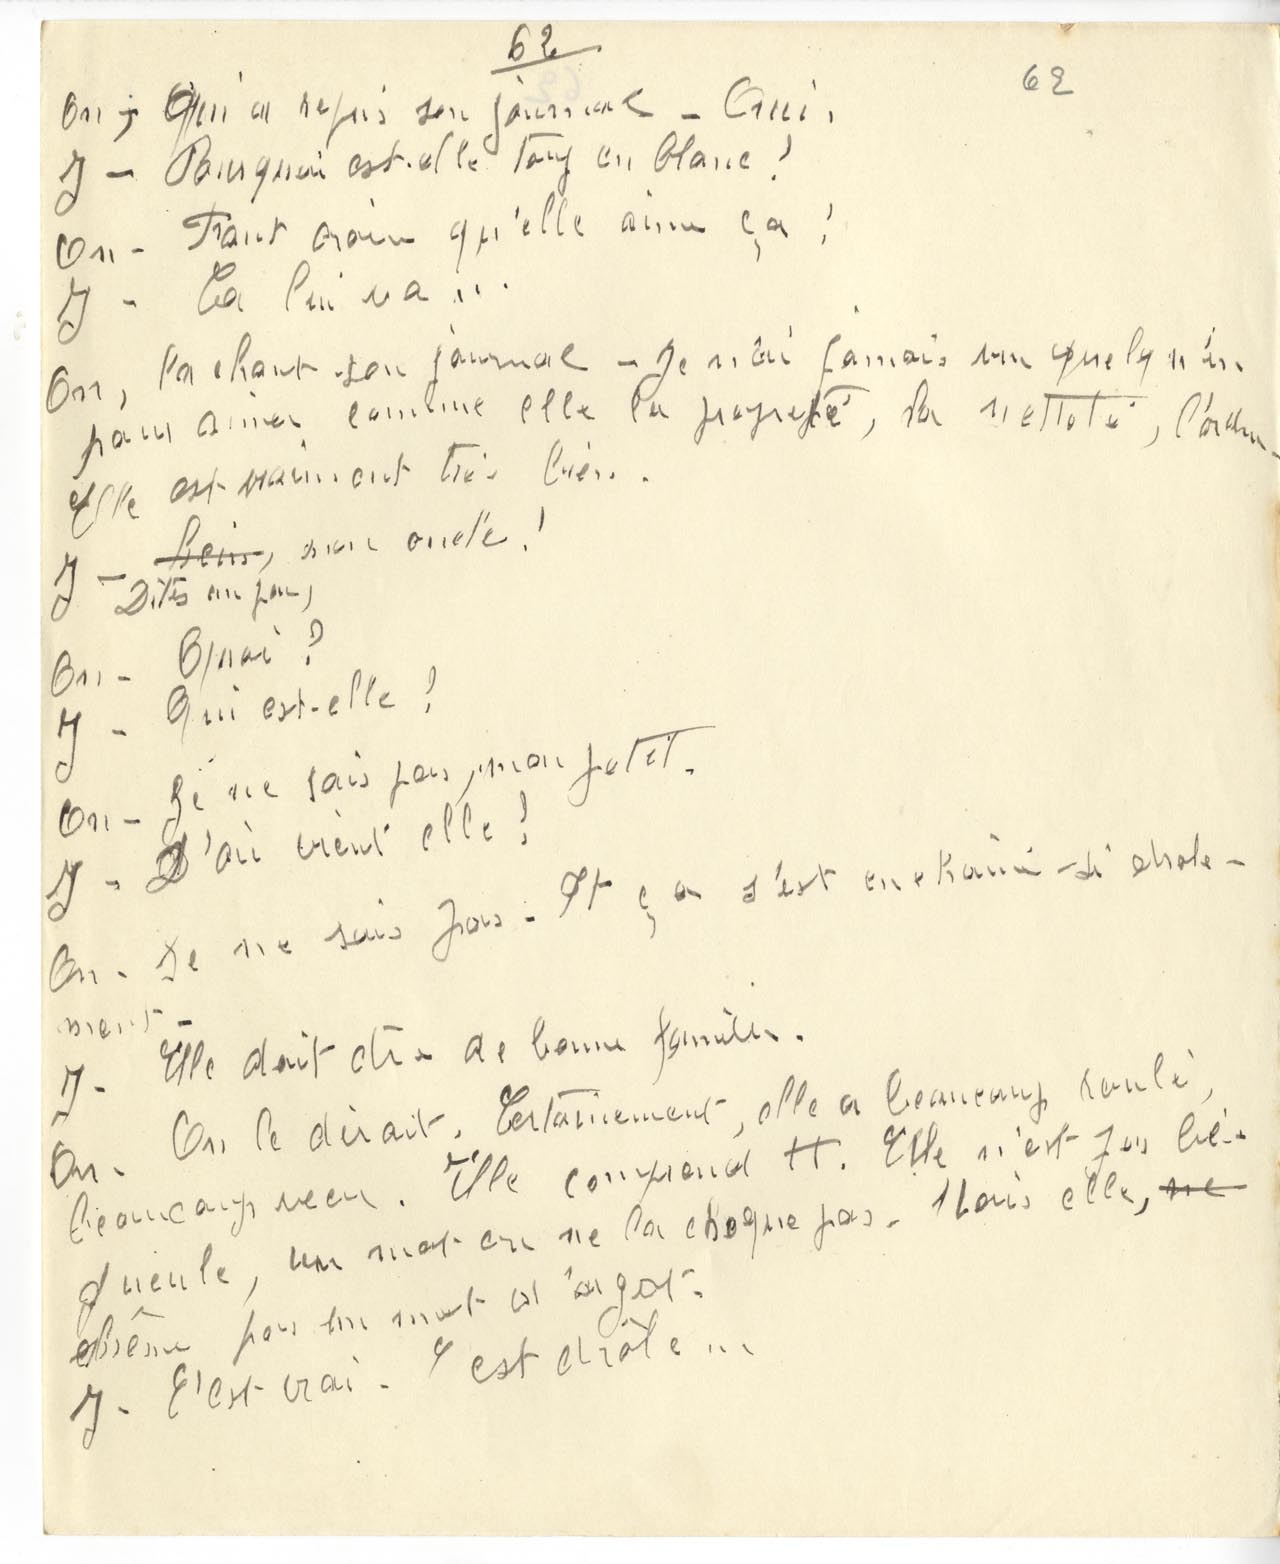 62
62
On, qui a repris son journal - Oui.
J - Pourquoi est-elle tout en blanc ?
On - Faut croire qu'elle aime ça !
J - Ça lui va ...
On, lachant son journal - Je n'ai jamais vu quelqu'un
pour aimer comme elle la propreté, la netteté, l'ordre.
Elle est vraiment très bien.
J - ~~Hein~~, mon oncle !
Dites un peu,
On - Quoi ?
J - Qui est-elle ?
On - Je ne sais pas, mon petit.
J - D'où vient elle ?
On - Je ne sais pas. Et ça s'est enchainé si drole-
ment -
J - Elle doit être de bonne famille.
On - On le dirait. Certainement, elle a beaucoup roulé,
beaucoup vécu. Elle comprend tt. Elle n'est pas bé-
gueule, un mot cru ne la choque pas. Mais elle, ~~ne~~
même pas un mot d'argot.
J - C'est vrai. C'est drôle ...